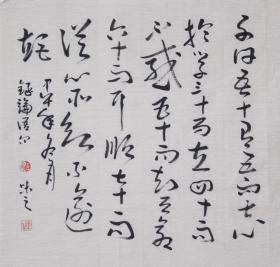 子曰吾十有五而志
於学三十而立四十而
不惑五十而知天命
六十而耳順七十而
從心所欲不逾
矩
甲午年冬月
錄論語句